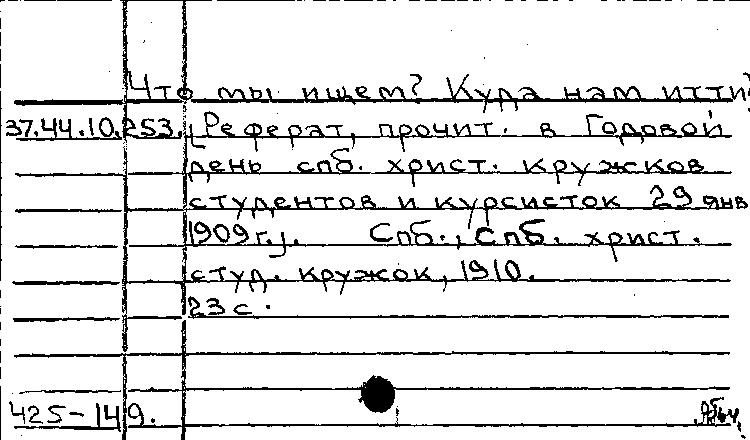 Что мы ищем? Куда нам итти?
37.44.10.253. [Реферат, прочит. в Годовой
день спб. христ. кружков
студентов и курсисток 29 янв
1909 г.]. Спб., Спб. христ.
студ. кружок, 1910.
23 с.
425-149.